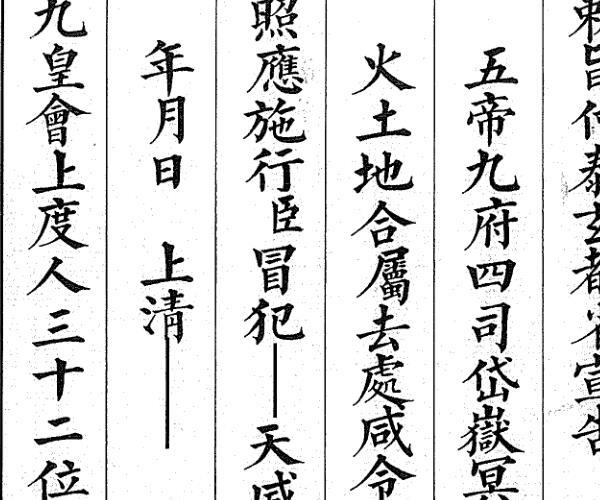 旨仰泰玄都省宣告
五帝九府四司岱嶽冥
火土地合屬去處咸令
照應施行臣冒犯——天威
年月日　上清——
九皇會上度人三十二位